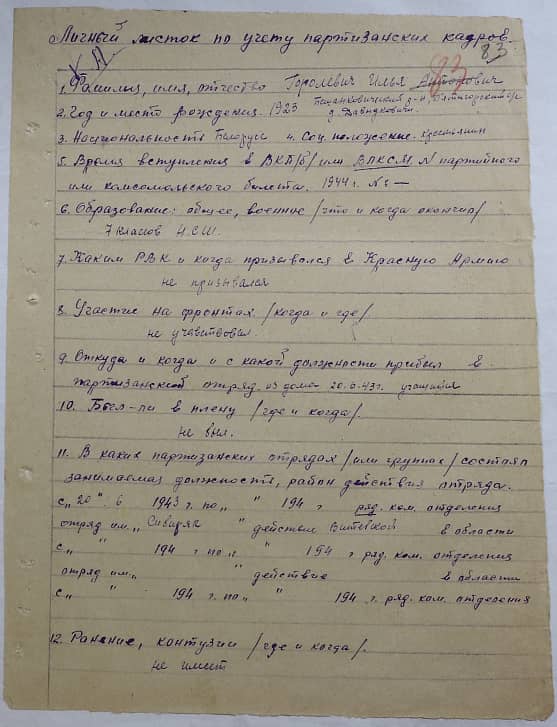 Личный листок по учету партизанских кадров.
83
83
1. Фамилия, имя, отчество Горолевич Илья Антонович
2. Год и место рождения. 1923 Бешенковичский р-н, Пятигорский с/с
д. Давыдковичи.
3. Национальность Белорус 4. Соц. положение. крестьянин
5. Время вступления в ВКП/б/ или ВЛКСМ N партийного
или комсомольского билета. 1944 г. №: —
6. Образование: общее, военное /что и когда окончил/
7 класов Н.С.Ш.
7. Каким РВК и когда призывался в Красную Армию
не призывался
8. Участие на фронтах /когда и где/
не учавствовал.
9. Откуда и когда и с какой должности прибыл в
партизанский отряд из дома 20.6.43г. учащийся
10. Был-ли в плену /где и когда/.
не был.
11. В каких партизанских отрядах /или группах/ состоял
занимаемая должность, район действия отряда.
с „20" 6 1943 г. по „ " 194 г ряд. ком. отделения
отряд им. „Сивицяк " действом Витебской в области
с „ " 194 г по „ " 194 г. ряд. ком. отделения
отряд им. „ " действие в области
с „ " 194 г. по „ " 194 г. ряд. ком. отделения
12. Ранение, контузии /где и когда/.
не имеет